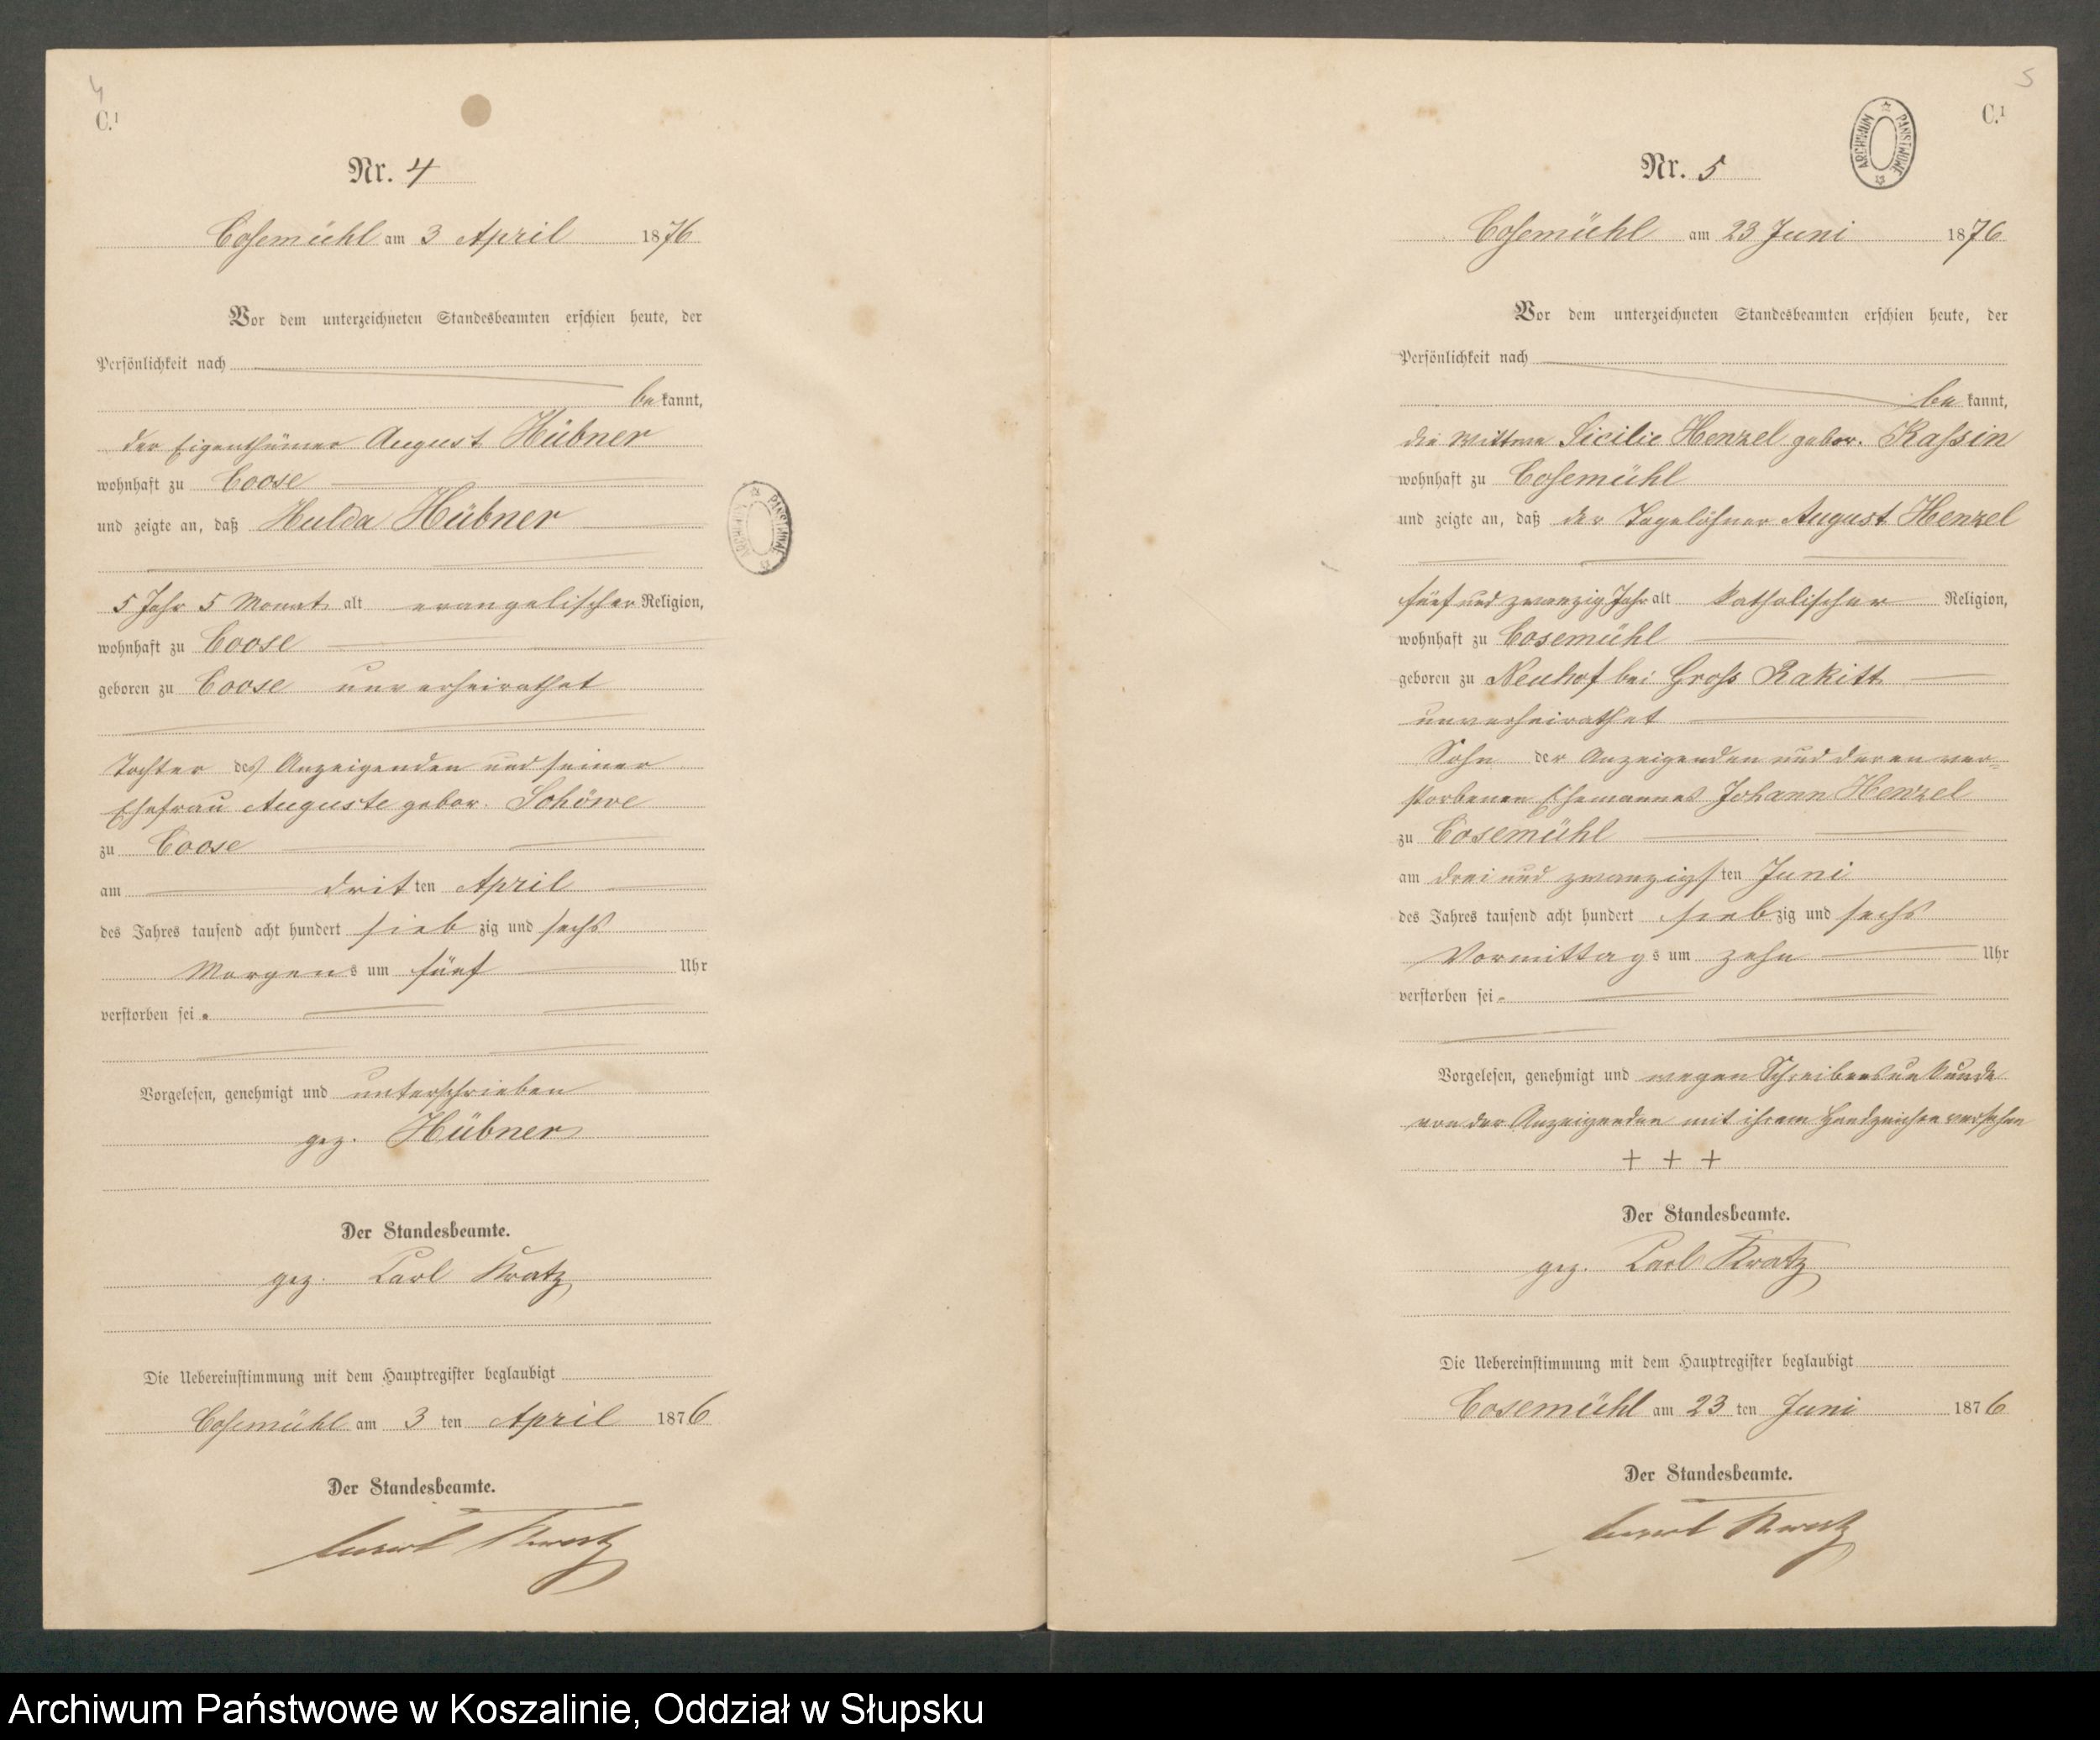 4
C.¹
Nr. 4
Cosemühl am 3 April 1876
Vor dem unterzeichneten Standesbeamten erschien heute, der
Persönlichkeit nach
be kannt,
der Eigenthümer August Hübner
wohnhaft zu Coose
und zeigte an, daß Hulda Hübner
5 Jahr 5 Monat alt evangelischer Religion,
wohnhaft zu Coose
geboren zu Coose unverheirathet
Tochter des Anzeigenden und seiner
Ehefrau Auguste gebor. Schöwe
zu Coose
am dritten April
des Jahres tausend acht hundert siebzig und sechs
Morgens um fünf Uhr
verstorben sei.
Vorgelesen, genehmigt und unterschrieben
gez. Hübner
Der Standesbeamte.
gez. Carl Kratz
Die Uebereinstimmung mit dem Hauptregister beglaubigt
Cosemühl am 3 ten April 1876
Der Standesbeamte.
Carl Kratz
ARCHIWUM PAŃSTWOWE
5
C.¹
ARCHIWUM PAŃSTWOWE
Nr. 5
Cosemühl am 23 Juni 1876
Vor dem unterzeichneten Standesbeamten erschien heute, der
Persönlichkeit nach
be kannt,
die Wittwe Sicilie Henzel gebor. Kassin
wohnhaft zu Cosemühl
und zeigte an, daß der Tagelöhner August Henzel
fünf und zwanzig Jahr alt katholischer Religion,
wohnhaft zu Cosemühl
geboren zu Neuhof bei Gross Rakitt
unverheirathet
Sohn der Anzeigenden und deren ver=
storbenen Ehemannes Johann Henzel
zu Cosemühl
am drei und zwanzigsten Juni
des Jahres tausend acht hundert siebzig und sechs
Vormittags um zehn Uhr
verstorben sei.
Vorgelesen, genehmigt und wegen Schreibensunkunde
von der Anzeigenden mit ihrem Handzeichen versehen
+ + +
Der Standesbeamte.
gez. Carl Kratz
Die Uebereinstimmung mit dem Hauptregister beglaubigt
Cosemühl am 23 ten Juni 1876
Der Standesbeamte.
Carl Kratz
Archiwum Państwowe w Koszalinie, Oddział w Słupsku